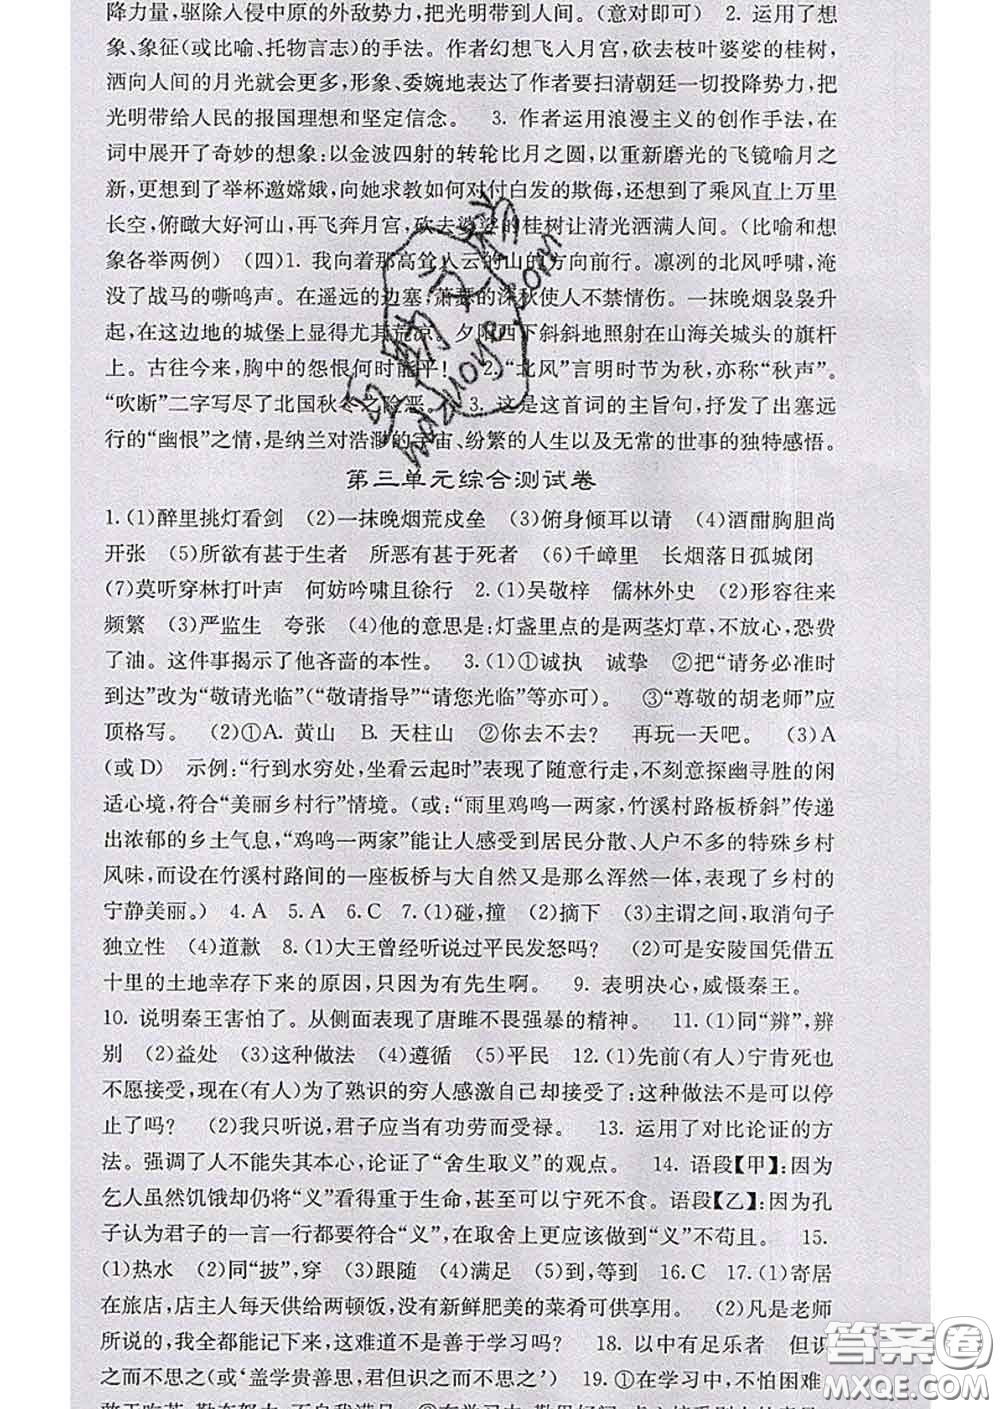 降力量，驱除入侵中原的外敌势力，把光明带到人间。（意对即可） 2. 运用了想
象、象征（或比喻、托物言志）的手法。作者幻想飞入月宫，砍去枝叶婆娑的桂树，
洒向人间的月光就会更多，形象、委婉地表达了作者要扫清朝廷一切投降势力，把
光明带给人民的报国理想和坚定信念。 3. 作者运用浪漫主义的创作手法，在
词中展开了奇妙的想象：以金波四射的转轮比月之圆，以重新磨光的飞镜喻月之
新，更想到了举杯邀嫦娥，向她求教如何对付白发的欺侮，还想到了乘风直上万里
长空，俯瞰大好河山，再飞奔月宫，砍去婆娑的桂树让清光洒满人间。（比喻和想
象各举两例） （四）1. 我向着那高耸入云的山的方向前行。凛冽的北风呼啸，淹
没了战马的嘶鸣声。在遥远的边塞，萧瑟的深秋使人不禁情伤。一抹晚烟袅袅升
起，在这边地的城堡上显得尤其荒凉，夕阳西下斜斜地照射在山海关城头的旗杆
上。古往今来，胸中的怨恨何时能平！ 2. “北风”言明时节为秋，亦称“秋声”。
“吹断”二字写尽了北国秋冬之险恶。 3. 这是这首词的主旨句，抒发了出塞远
行的“幽恨”之情，是纳兰对浩渺的宇宙、纷繁的人生以及无常的世事的独特感悟。
第三单元综合测试卷
1. (1)醉里挑灯看剑 (2)一抹晚烟荒戍垒 (3)俯身倾耳以请 (4)酒酣胸胆尚
开张 (5)所欲有甚于生者 所恶有甚于死者 (6)千嶂里 长烟落日孤城闭
(7)莫听穿林打叶声 何妨吟啸且徐行 2. (1)吴敬梓 儒林外史 (2)形容往来
频繁 (3)严监生 夸张 (4)他的意思是：灯盏里点的是两茎灯草，不放心，恐费
了油。这件事揭示了他吝啬的本性。 3. (1)①诚执 诚挚 ②把“请务必准时
到达”改为“敬请光临”（“敬请指导”“请您光临”等亦可）。 ③“尊敬的胡老师”应
顶格写。 (2)①A. 黄山 B. 天柱山 ②你去不去？ 再玩一天吧。 (3)A
（或D） 示例：“行到水穷处，坐看云起时”表现了随意行走，不刻意探幽寻胜的闲
适心境，符合“美丽乡村行”情境。（或：“雨里鸡鸣一两家，竹溪村路板桥斜”传递
出浓郁的乡土气息，“鸡鸣一两家”能让人感受到居民分散、人户不多的特殊乡村
风味，而设在竹溪村路间的一座板桥与大自然又是那么浑然一体，表现了乡村的
宁静美丽。） 4. A 5. A 6. C 7. (1)碰，撞 (2)摘下 (3)主谓之间，取消句子
独立性 (4)道歉 8. (1)大王曾经听说过平民发怒吗？ (2)可是安陵国凭借五
十里的土地幸存下来的原因，只因为有先生啊。 9. 表明决心，威慑秦王。
10. 说明秦王害怕了。从侧面表现了唐雎不畏强暴的精神。 11. (1)同“辨”，辨
别 (2)益处 (3)这种做法 (4)遵循 (5)平民 12. (1)先前（有人）宁肯死也
不愿接受，现在（有人）为了熟识的穷人感激自己却接受了；这种做法不是可以停
止了吗？ (2)我只听说，君子应当有功劳而受禄。 13. 运用了对比论证的方
法。强调了人不能失其本心，论证了“舍生取义”的观点。 14. 语段【甲】：因为
乞人虽然饥饿却仍将“义”看得重于生命，甚至可以宁死不食。语段【乙】：因为孔
子认为君子的一言一行都要符合“义”，在取舍上更应该做到“义”不苟且。 15.
(1)热水 (2)同“披”，穿 (3)跟随 (4)满足 (5)到，等到 16. C 17. (1)寄居
在旅店，店主人每天供给两顿饭，没有新鲜肥美的菜肴可供享用。 (2)凡是老师
所说的，我全都能记下来，这难道不是善于学习吗？ 18. 以中有足乐者 但识
之而不思之（或‘盖学贵善思，君但识之而不思之’） 19. ①在学习中，不怕困难，
答案圈
MXQE.COM